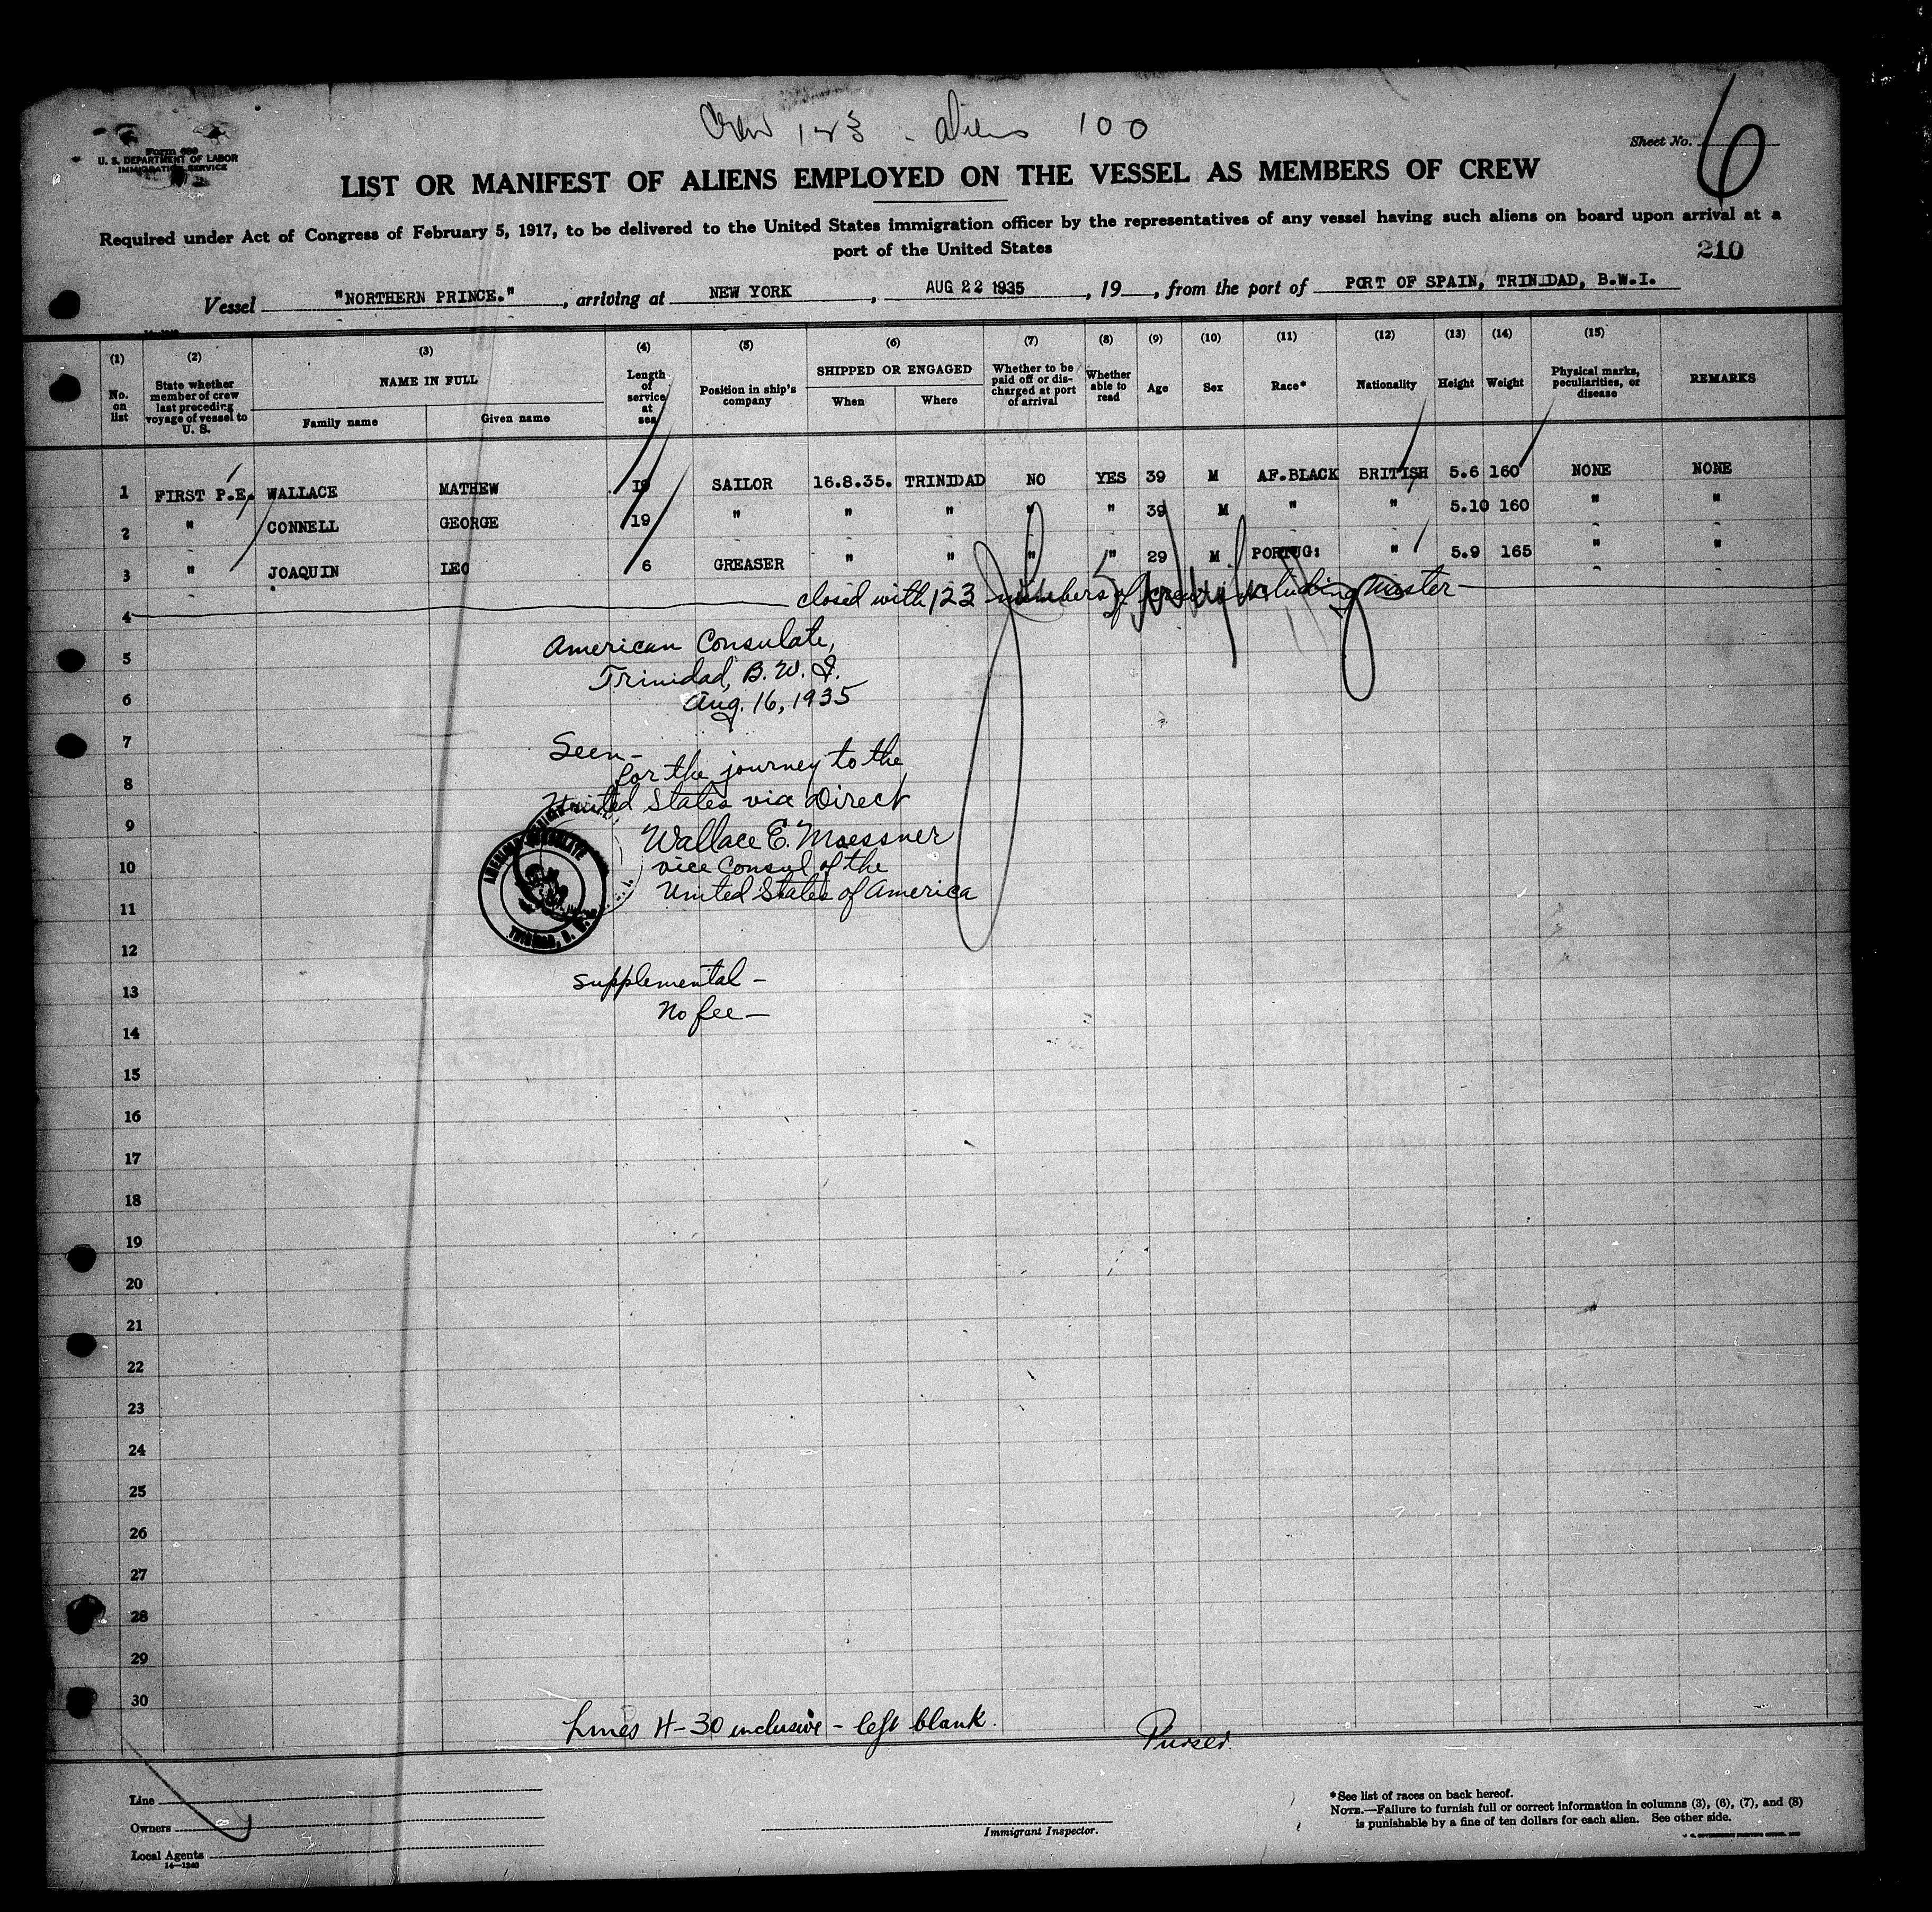 Crew 123 - aliens 100
Form 680
U. S. DEPARTMENT OF LABOR
IMMIGRATION SERVICE
Sheet No. 6
LIST OR MANIFEST OF ALIENS EMPLOYED ON THE VESSEL AS MEMBERS OF CREW
Required under Act of Congress of February 5, 1917, to be delivered to the United States immigration officer by the representatives of any vessel having such aliens on board upon arrival at a
port of the United States
210
Vessel "NORTHERN PRINCE.", arriving at NEW YORK, AUG 22 1935, 19 , from the port of PORT OF SPAIN, TRINIDAD, B.W.I.
(1) (2) (3) (4) (5) (6) (7) (8) (9) (10) (11) (12) (13) (14) (15)
No. on list
State whether member of crew last preceding voyage of vessel to U. S.
NAME IN FULL
Family name
Given name
Length of service at sea
Position in ship's company
SHIPPED OR ENGAGED
When
Where
Whether to be paid off or discharged at port of arrival
Whether able to read
Age
Sex
Race*
Nationality
Height
Weight
Physical marks, peculiarities, or disease
REMARKS
1 FIRST P.E. WALLACE MATHEW 19 SAILOR 16.8.35. TRINIDAD NO YES 39 M AF.BLACK BRITISH 5.6 160 NONE NONE
2 " CONNELL GEORGE 19 " " " " " 39 M " " 5.10 160 " "
3 " JOAQUIN LEO 6 GREASER " " " " 29 M PORTUG: " 5.9 165 " "
4 closed with 123 members of crew including master
5 American Consulate,
Trinidad, B. W. I.
6 Aug. 16, 1935
7 Seen-
8 for the journey to the
United States via Direct
9 Wallace E. Moessner
10 vice Consul of the
11 United States of America
AMERICAN CONSULATE
TRINIDAD, B. W. I.
12
13 Supplemental -
14 No fee -
15
16
17
18
19
20
21
22
23
24
25
26
27
28
29
30
Lines 4-30 inclusive - left blank.
Purser.
Line
Owners
Local Agents
14—1240
Immigrant Inspector.
*See list of races on back hereof.
NOTE.—Failure to furnish full or correct information in columns (3), (6), (7), and (8)
is punishable by a fine of ten dollars for each alien. See other side.